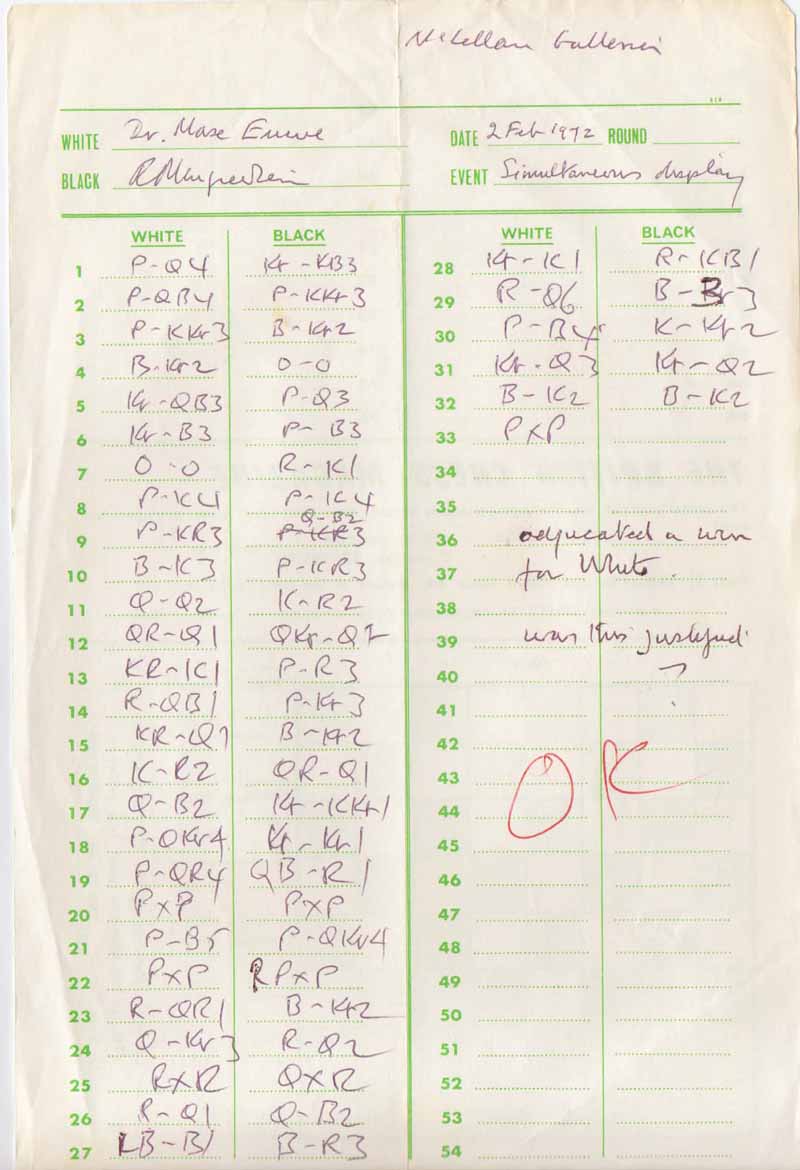 McLellan Galleries
WHITE Dr. Maxe Euwe
DATE 2 Feb 1972 ROUND
BLACK
EVENT Simultaneous display
WHITE BLACK
1 P-Q4 Kt-KB3
2 P-QB4 P-KKt3
3 P-KKt3 B-Kt2
4 B-Kt2 O-O
5 Kt-QB3 P-Q3
6 Kt-B3 P-B3
7 O-O R-K1
8 P-K4 P-K4
Q-B2
9 P-KR3 P-KR3
10 B-K3 P-KR3
11 Q-Q2 K-R2
12 QR-Q1 QKt-Q2
13 KR-K1 P-R3
14 R-QB1 P-Kt3
15 KR-Q1 B-Kt2
16 K-R2 QR-Q1
17 Q-B2 Kt-KKt1
18 P-QKt4 Kt-Kt1
19 P-QR4 QB-R1
20 PxP PxP
21 P-B5 P-QKt4
22 PxP RPxP
23 R-QR1 B-Kt2
24 Q-Kt3 R-Q2
25 RxR QxR
26 R-Q1 Q-B2
27 B-B1 B-R3
WHITE BLACK
28 Kt-K1 R-KB1
29 R-Q6 B-B3
30 P-B4 K-Kt2
31 Kt-Q3 Kt-Q2
32 B-K2 B-K2
33 PxP
34
35
36 adjucated a win
37 for White.
38
39 was this justified
40 ?
41
42
43 OK
44
45
46
47
48
49
50
51
52
53
54